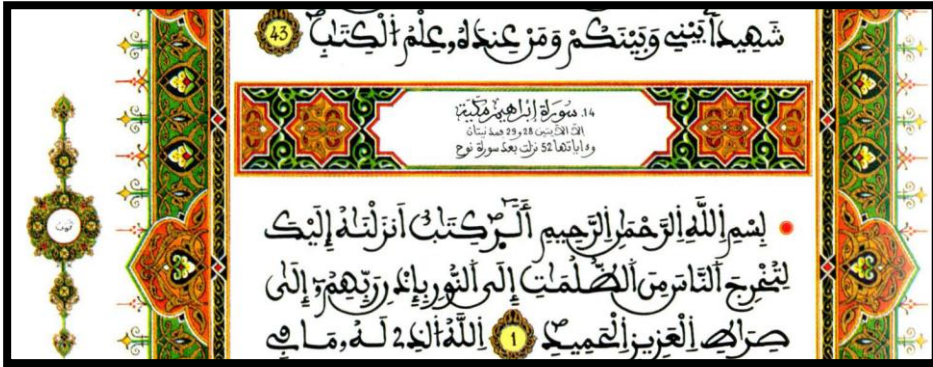 شَهِيداَۢ بَيْنِے وَبَيْنَكُمْ وَمَنْ عِندَهُۥ عِلْمُ اُ۬لْكِتَٰبِۖ 43
14. سُورَةُ إِبْرَاهِيمَ مَكِّيَّة
إلا الآيتين 28 و 29 فمدنيتان
وءاياتها 52 نزلت بعد سورة نوح
بِسْمِ اِ۬للَّهِ اِ۬لرَّحْمَٰنِ اِ۬لرَّحِيمِ أَلَٓرۖ كِتَٰبٌ اَنزَلْنَٰهُ إِلَيْكَ
ثمن
لِتُخْرِجَ اَ۬لنَّاسَ مِنَ اَ۬لظُّلُمَٰتِ إِلَي اَ۬لنُّورِ بِإِذْنِ رَبِّهِمُۥٓ إِلَىٰ
صِرَٰطِ اِ۬لْعَزِيزِ اِ۬لْحَمِيدِۖ 1 اِ۬للَّهُ اُ۬لذِے لَهُۥ مَا فِے